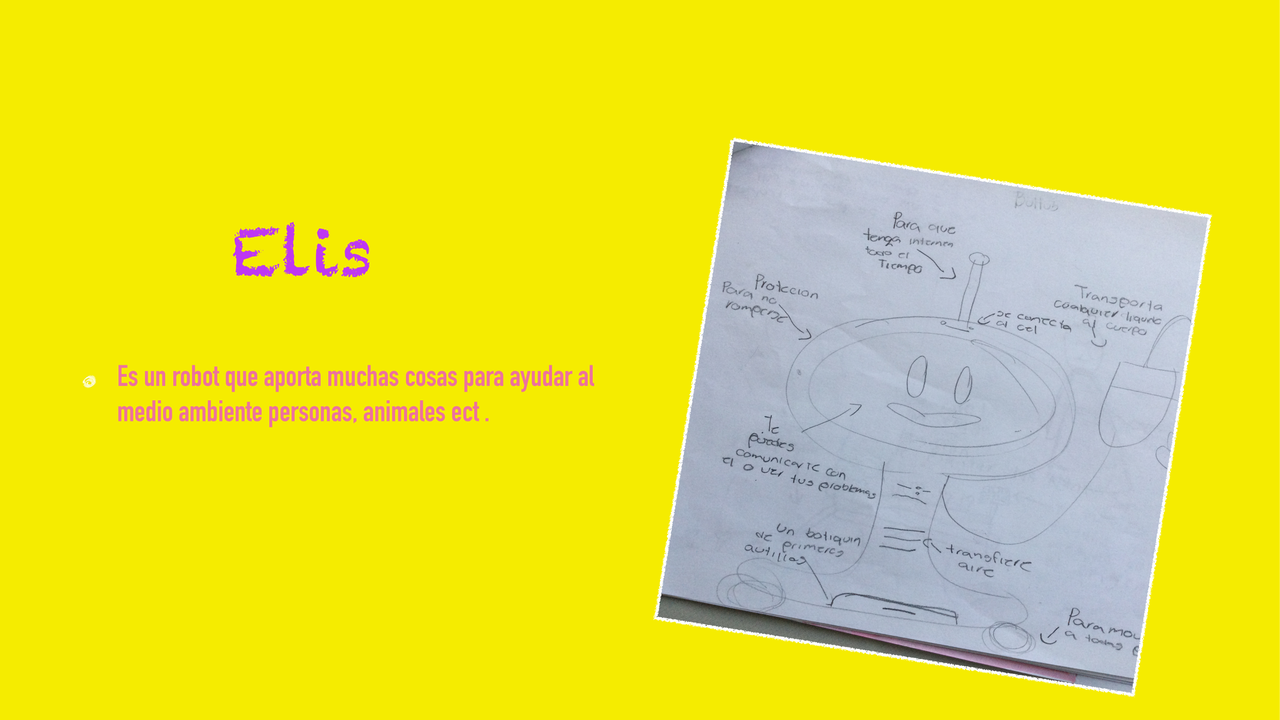 Elis
Es un robot que aporta muchas cosas para ayudar al
medio ambiente personas, animales ect .
Para que
tenga internen
todo el
Tiempo
Protecion
Para no
romperse
se conecta
al cel
Transporta
cualquier liquido
al cuerpo
Te
puedes
comunicarte con
el o ver tus problemas
un botiquin
de primeros
autillos
transfiere
aire
Para mov
a todas